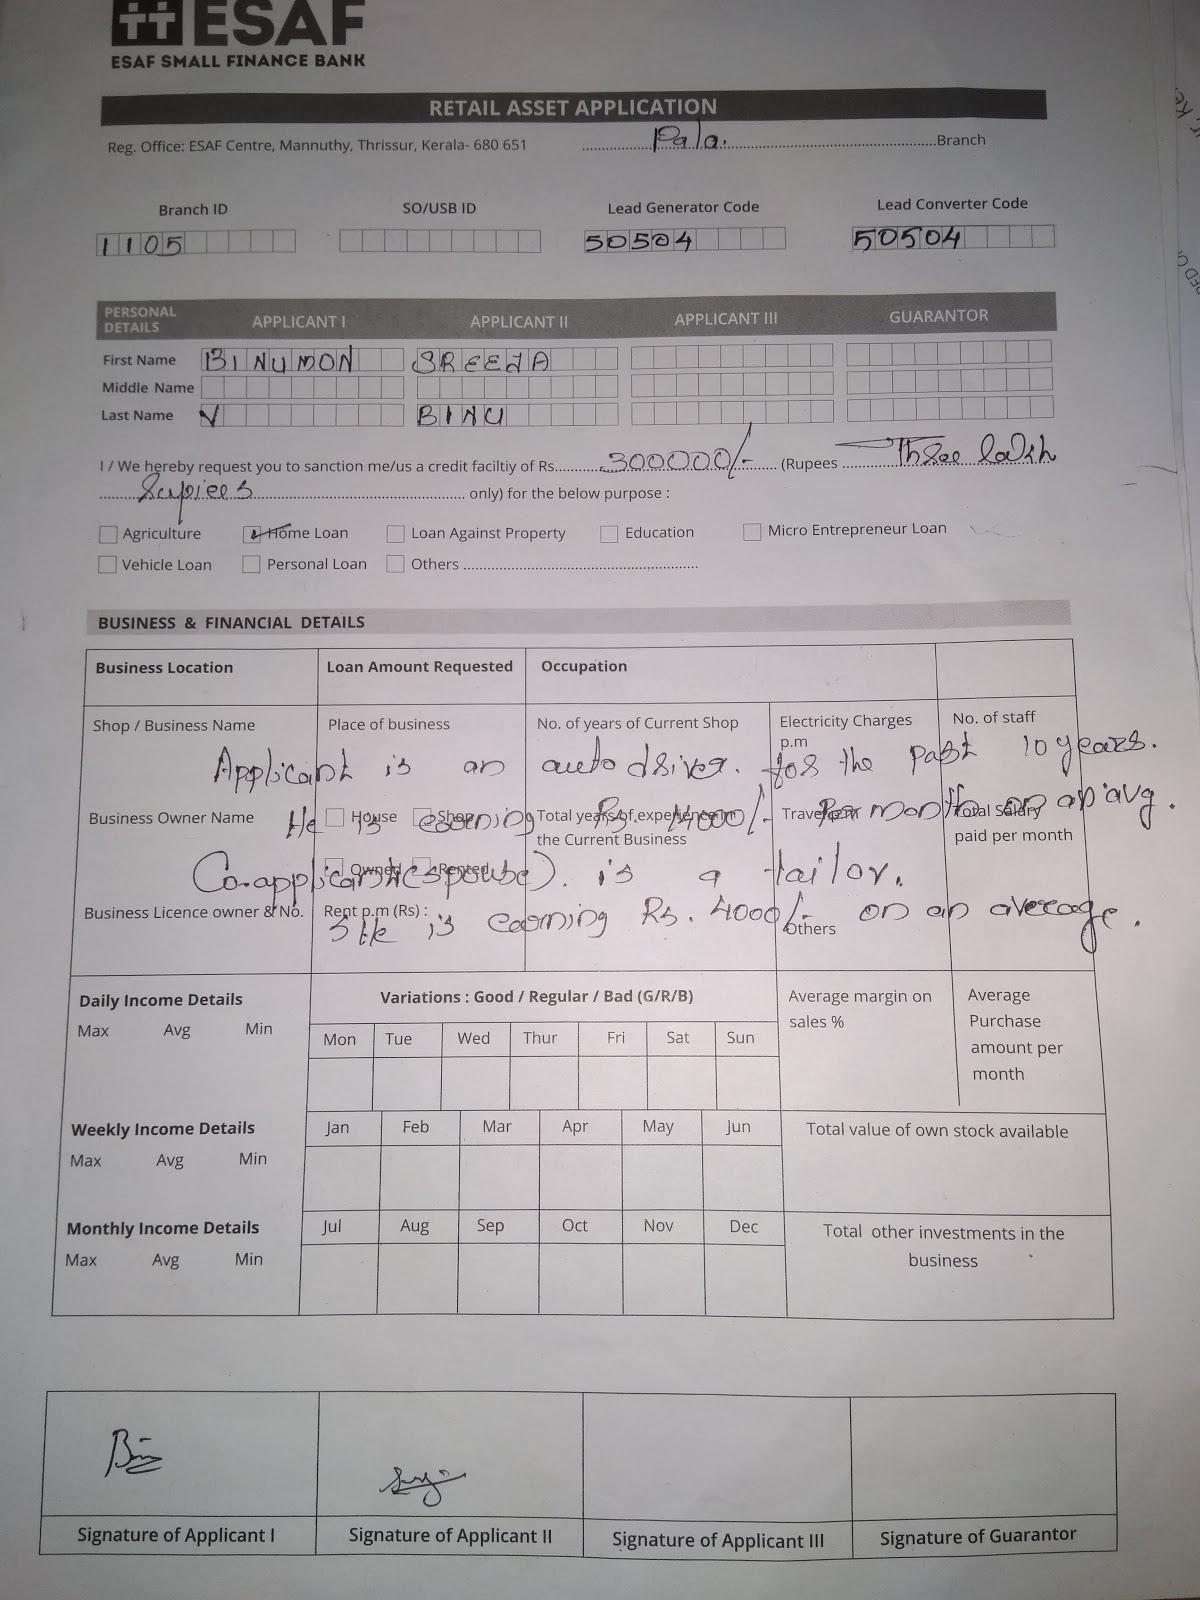 ESAF
ESAF SMALL FINANCE BANK
RETAIL ASSET APPLICATION
Reg. Office: ESAF Centre, Mannuthy, Thrissur, Kerala- 680 651 Pala. Branch
Branch ID SO/USB ID Lead Generator Code Lead Converter Code
1105 50504 50504
PERSONAL DETAILS APPLICANT I APPLICANT II APPLICANT III GUARANTOR
First Name BINUMON SREEJA
Middle Name
Last Name V BINU
I / We hereby request you to sanction me/us a credit faciltiy of Rs. 300000/- (Rupees Three lakh
rupiees only) for the below purpose :
Agriculture Home Loan Loan Against Property Education Micro Entrepreneur Loan
Vehicle Loan Personal Loan Others
BUSINESS & FINANCIAL DETAILS
Business Location Loan Amount Requested Occupation
Shop / Business Name Place of business No. of years of Current Shop Electricity Charges p.m No. of staff
Applicant is an auto driver. for the past 10 years.
Business Owner Name House Shop Total years of experience in the Current Business Travel Total Salary paid per month
He is earning Rs. 14000/- Per month on an avg.
Owned Rented
Co-applicant (spouse). is a tailor.
Business Licence owner & No. Rent p.m (Rs) : Others
She is earning Rs. 4000/- on an average.
Daily Income Details Variations : Good / Regular / Bad (G/R/B) Average margin on sales % Average Purchase amount per month
Max Avg Min
Mon Tue Wed Thur Fri Sat Sun
Weekly Income Details Jan Feb Mar Apr May Jun Total value of own stock available
Max Avg Min
Monthly Income Details Jul Aug Sep Oct Nov Dec Total other investments in the business
Max Avg Min
Signature of Applicant I Signature of Applicant II Signature of Applicant III Signature of Guarantor